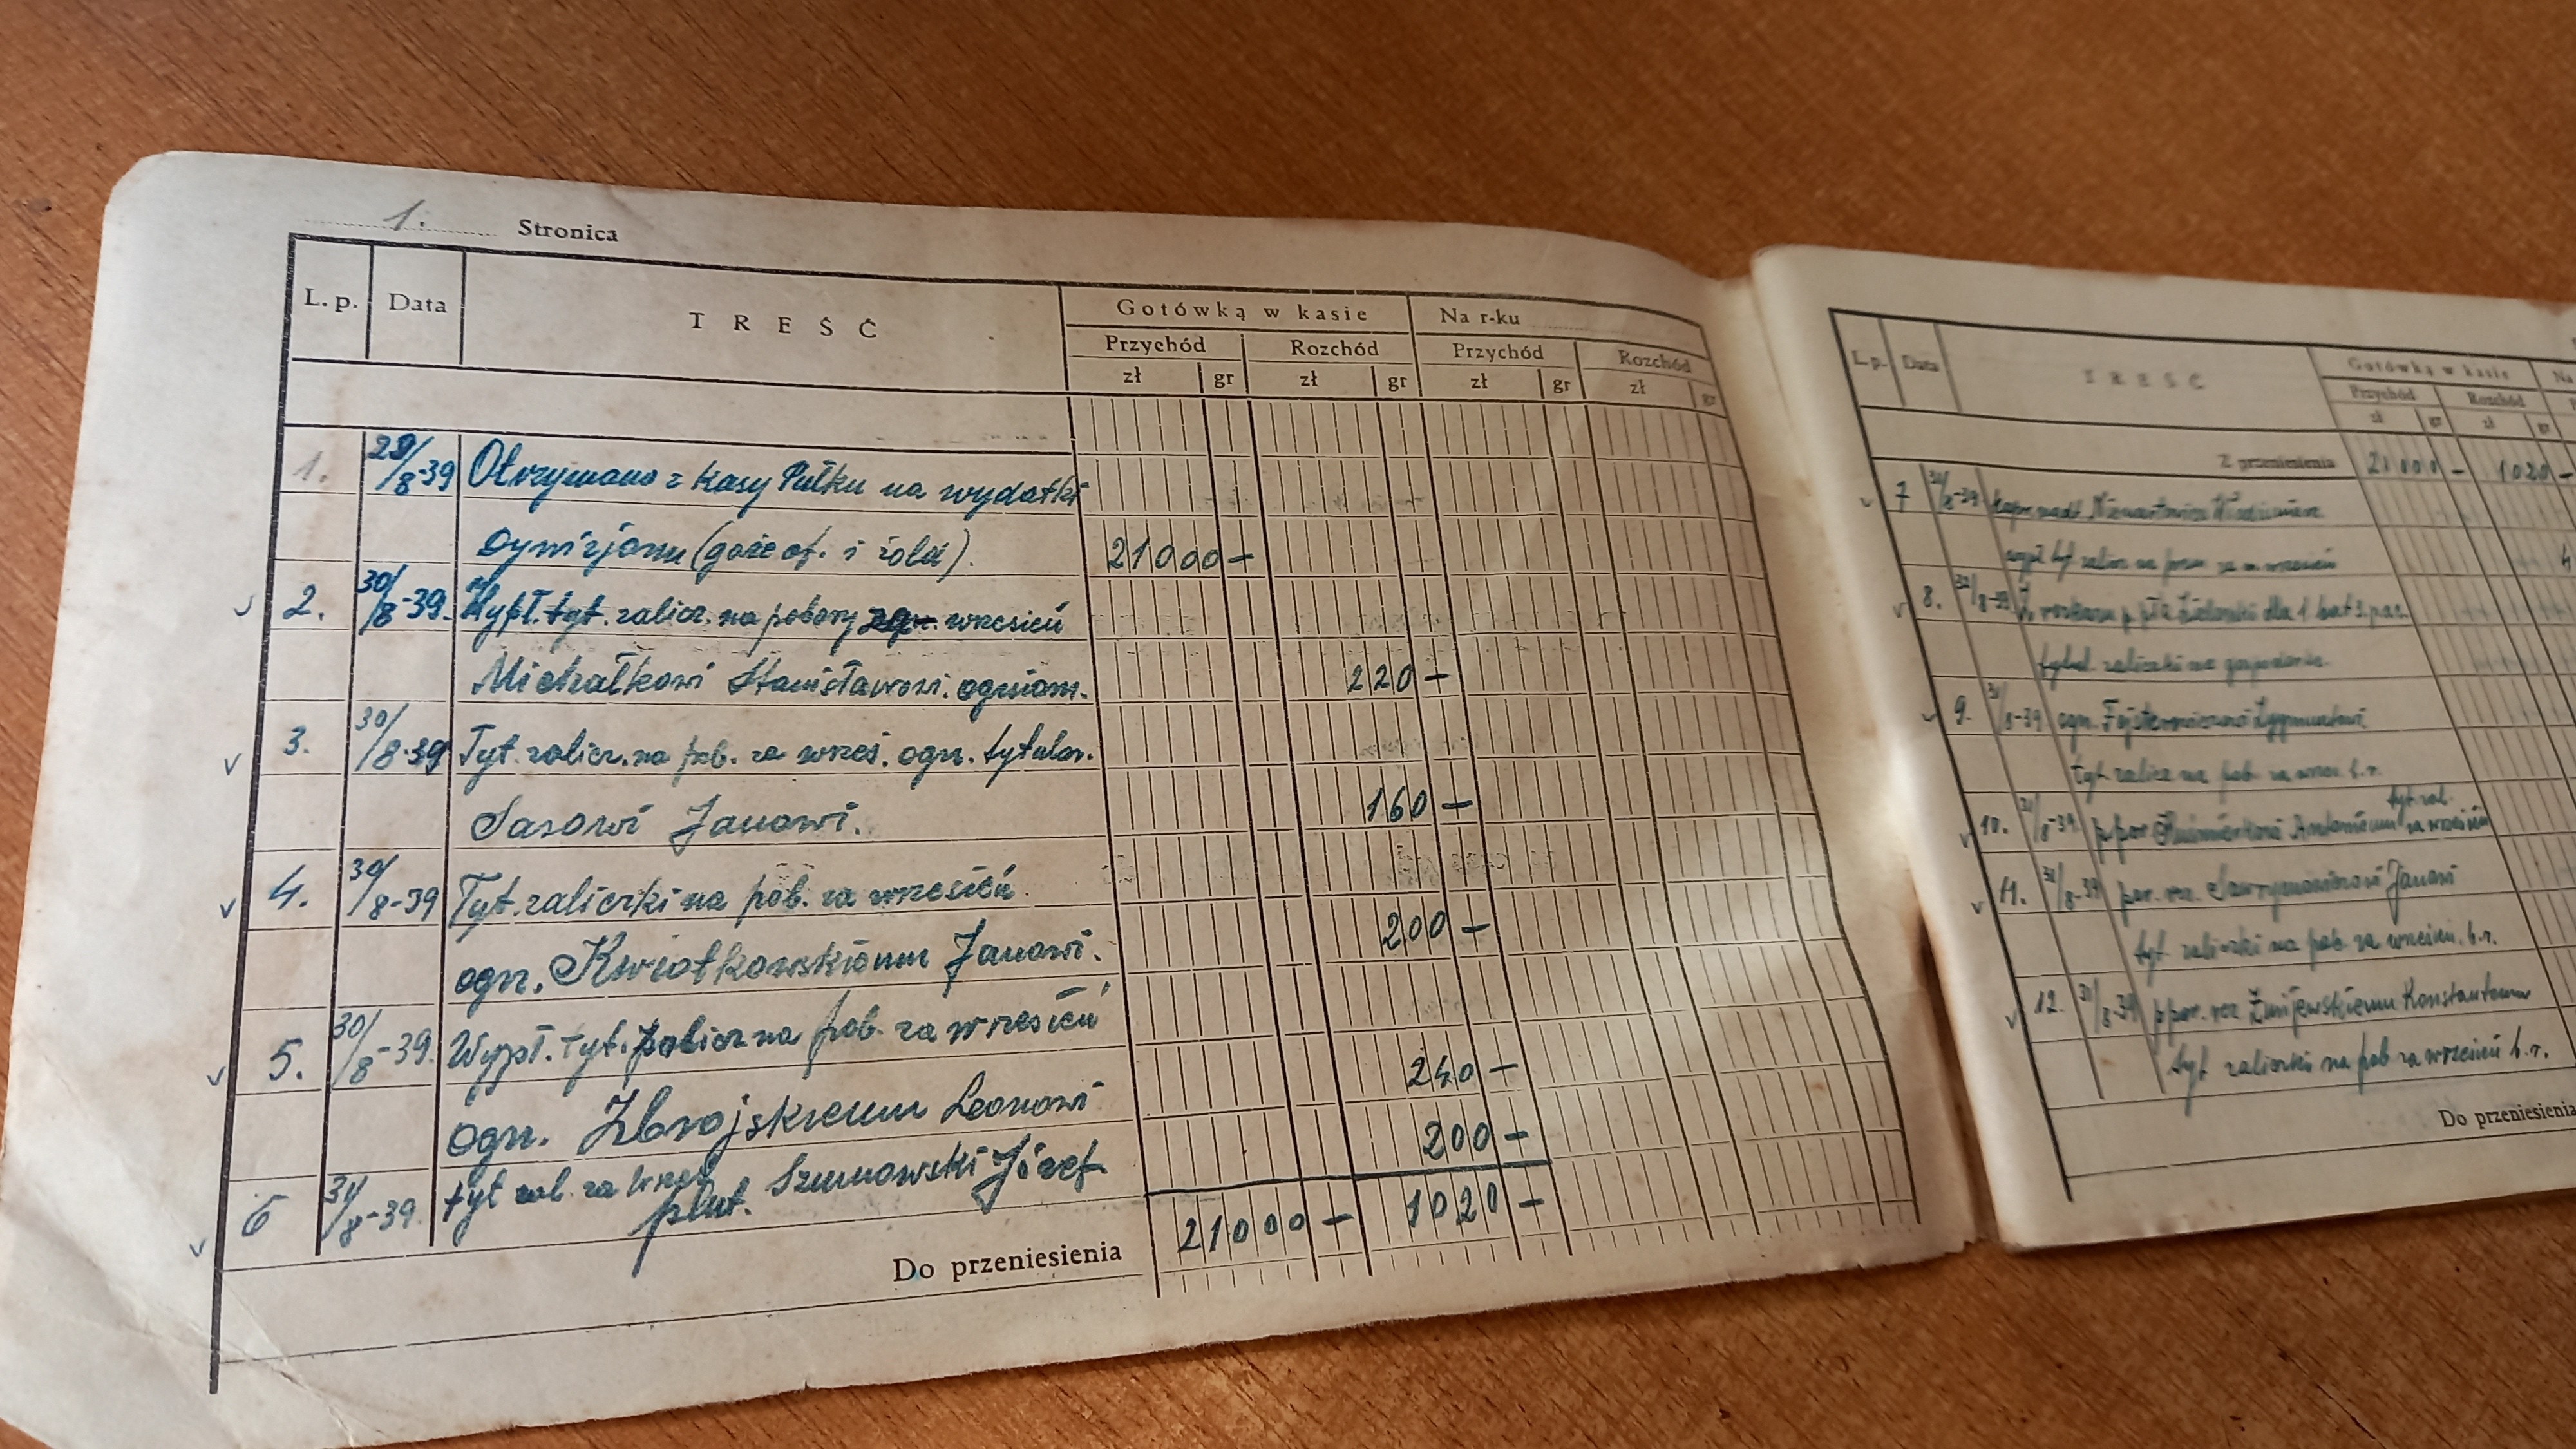 1. Stronica
L. p. Data TREŚĆ Gotówką w kasie Na r-ku
Przychód Rozchód Przychód Rozchód
zł gr zł gr zł gr zł gr
1. 29/8-39 Otrzymano z kasy Pułku na wydatki
Dywizjonu (gaże of. i żołd). 21000 -
2. 30/8-39. Wypł. tyt. zalicz. na pobory wrzesień
Michałkowi Stanisławowi. ogniom. 220 -
3. 30/8-39 Tyt. zalicz. na pob. za wrześ. ogn. tytular.
Sasowi Janowi. 160 -
4. 30/8-39 Tyt. zaliczki na pob. za wrzesień
ogn. Kwiatkowskiemu Janowi. 200 -
5. 30/8-39. Wypł. tyt. zalicz na pob. za wrzesień
ogn. Zbrojskiemu Leonowi 240 -
6 31/8-39. tyt zal. za wrześ Szumowski Józef 200 -
plut.
Do przeniesienia 21000 - 1020 -
L. p. Data TREŚĆ Gotówką w kasie Na
Przychód Rozchód
zł gr zł gr
Z przeniesienia 21000 - 1020 -
7 31/8-39
wypł tyt zalicz na pob za m. wrzesień
8. 31/8-39 dla 1 bat 3. pac.
tytuł. zaliczki na
9. 31/8-39 ogn. Zygmuntowi
tyt. zalicz na pob. za wrzes. b.r.
10. 31/8-39 ppor. Antoniemu tyt. zal. za wrzesień
11. 31/8-39 por. rez. Janowi
tyt. zaliczki na pob. za wrzesień. b.r.
12. 31/8-39 ppor. rez Żmijewskiemu Konstantemu
tyt zaliczki na pob za wrzesień b.r.
Do przeniesienia